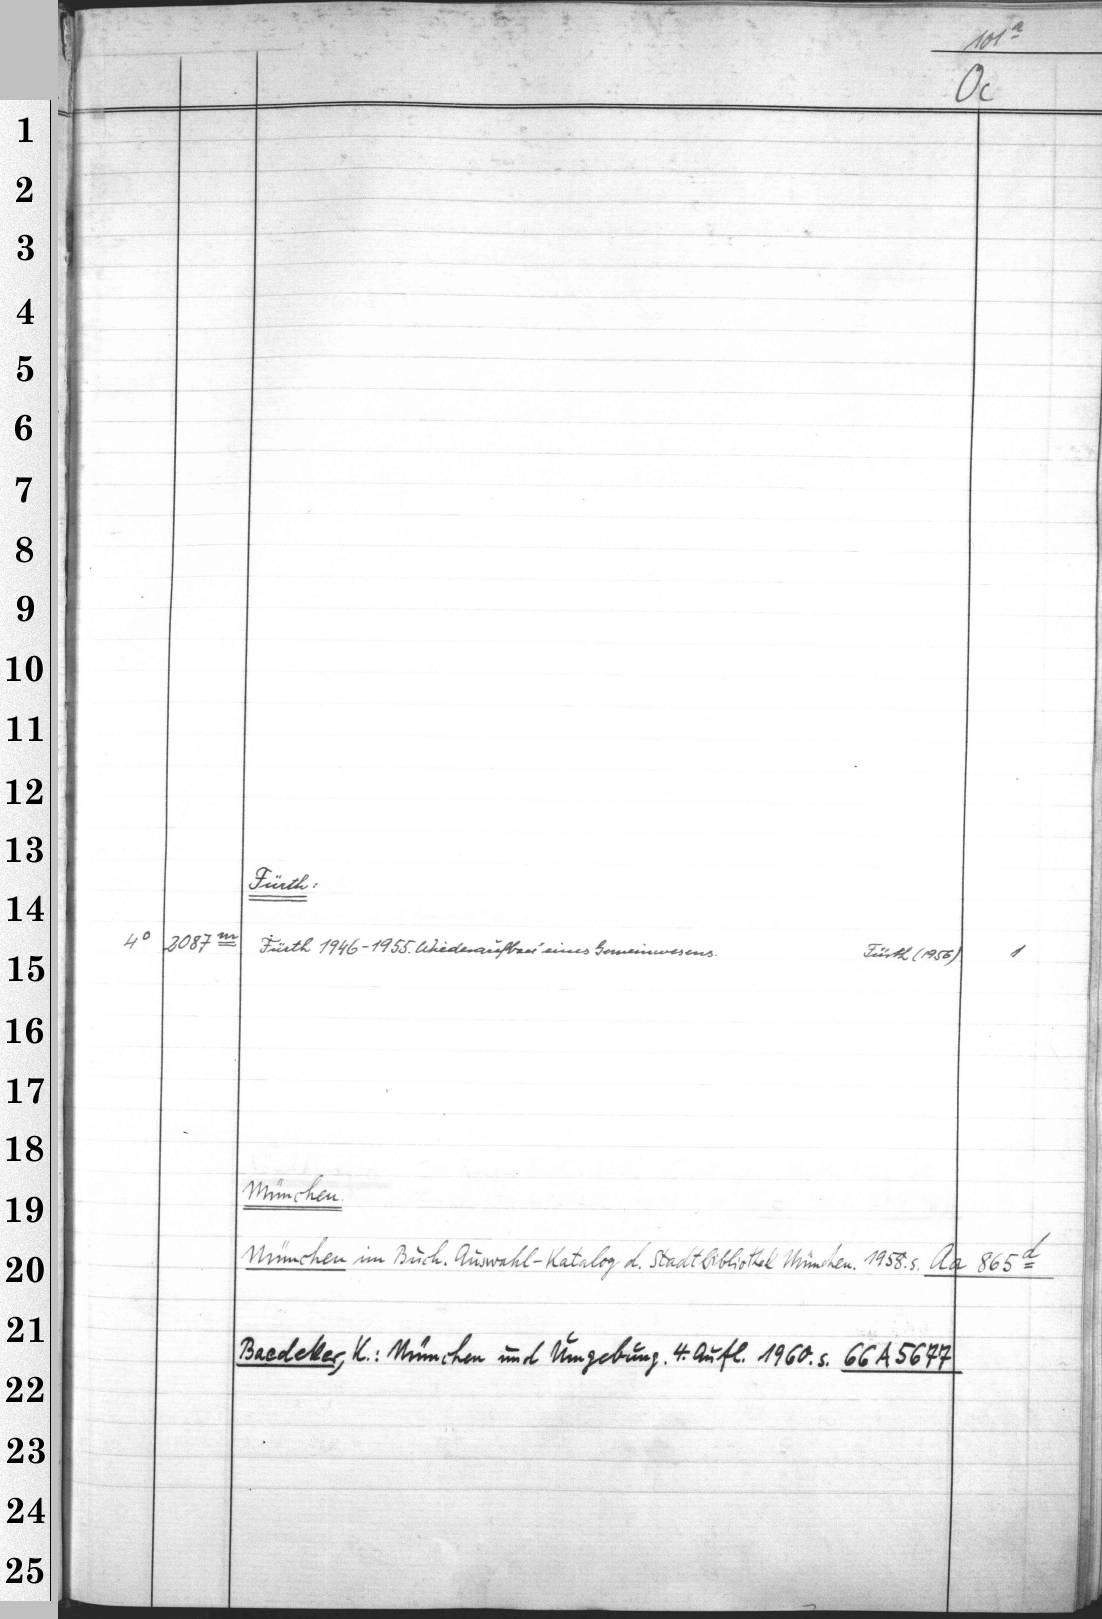 101ª
Oc
1
2
3
4
5
6
7
8
9
10
11
12
13
Fürth:
14
4° 2087 m Fürth 1946-1955. Wiederaufbau eines Gemeinwesens. Fürth (1956) 1
15
16
17
18
München.
19
München im Buch. Auswahl-Katalog d. Stadtbibliothek München. 1958. s. Aa 865 d
20
21
Baedeker, K.: München und Umgebung. 4. Aufl. 1960. s. 66 A 5677
22
23
24
25